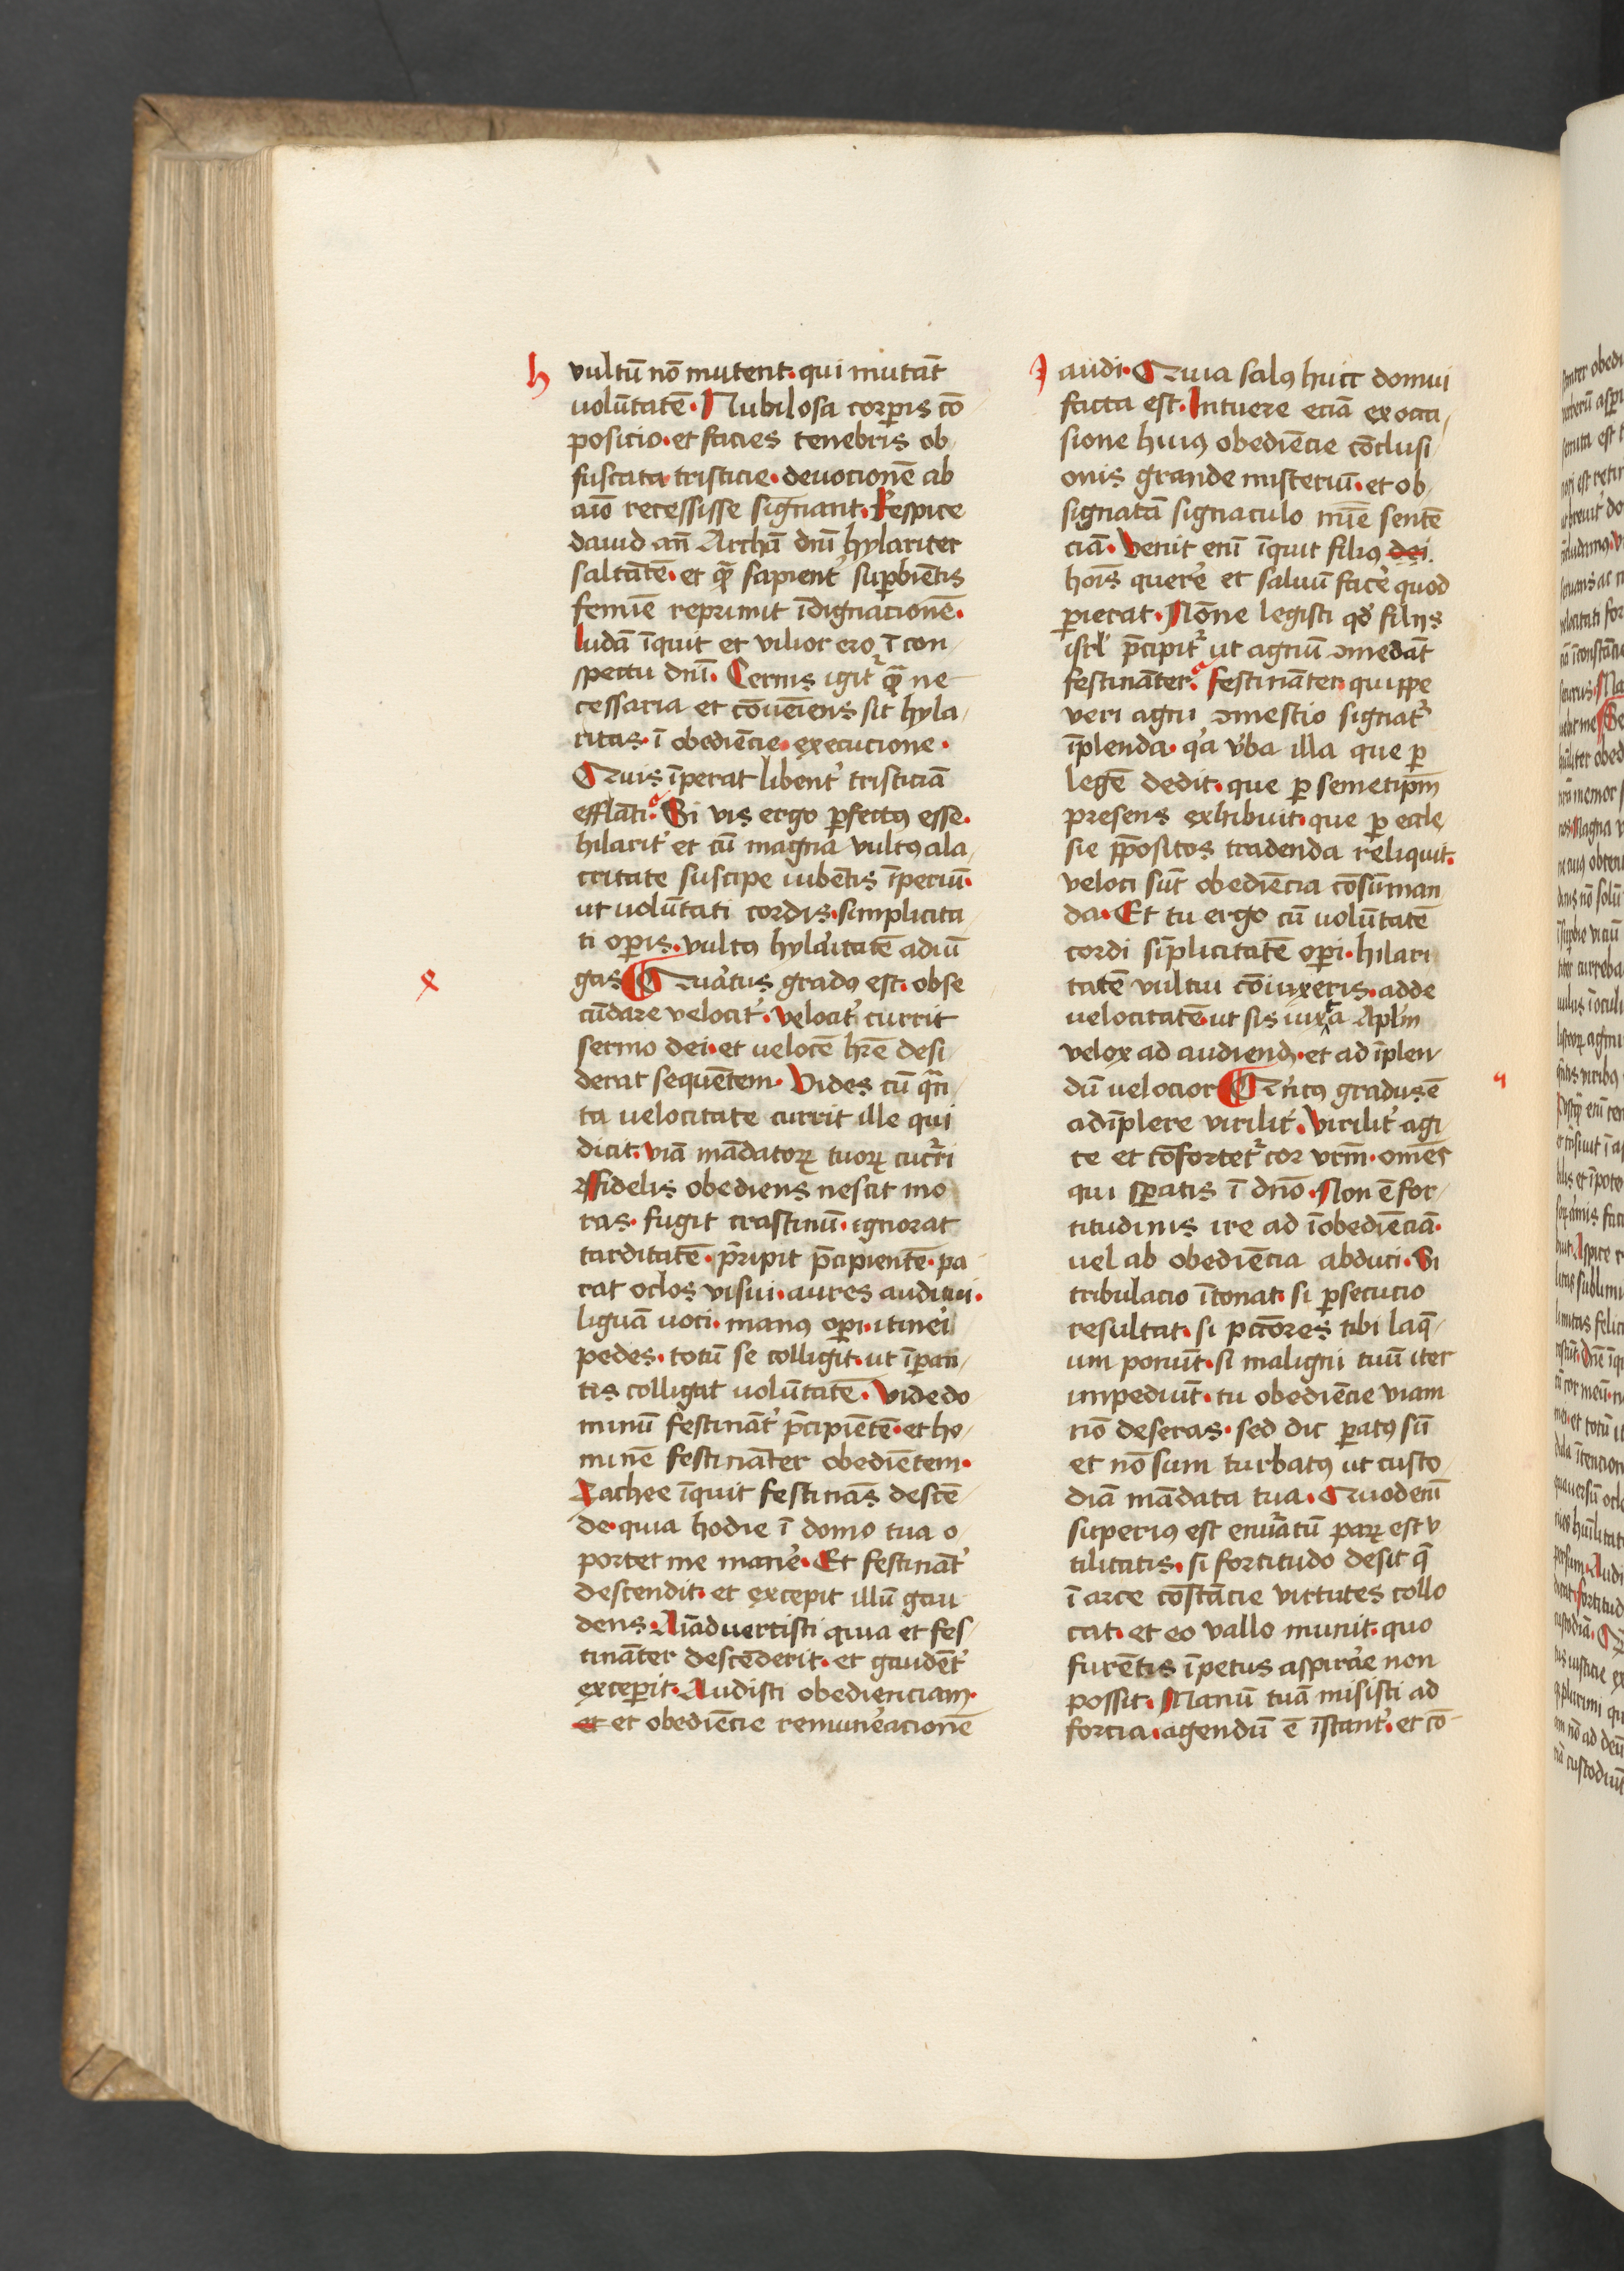 h
vultū nō mutent. qui mutāt
volūtatē. Nubilosa corꝑis cō
positio. et facies tenebris ob
fuscata tristicie. devocionē ab
aīo recessisse signant. Respice
david an̄ Archā dnī hylariter
saltātē. et ꝙ̄ sapienť suꝑbiētis
femīe reprimit īdignacionē.
ludā īquit et vilior ero ī con
spectu dnī. Cernis igiť ꝙ̄ ne
cessaria et cōueīens sit hyla
ritas. ī obediēcie. execucione.
Quis īperat libenť tristiciā
efflāti. Si vis ergo ꝑfectꝰ esse.
hilariť et cū magna vultꝰ ala
critate suscipe iubētis īperiū.
ut volūtati cordis. simplicita
ti oꝑis. vultꝰ hylaritatē adiū
gas Quartus gradꝰ est. obse
cūdare velociť. velociť currit
sermo dei. et velocē hr̄e desi
derat sequētem. Vides cū qn̄
ta velocitate currit ille qui
dicit. viā mādatoꝝ tuoꝝ cucrri
Fidelis obediens nescit mo
ras. fugit crastinū. ignorat
tarditatē. p̄ripit p̄cipientē. pa
rat oclos visui. aures auditui.
liguā voci. manꝰ oꝑi. itineri
pedes. totū se colligit. ut īperan
tis colligat volūtatē. Vide do
minū festināť p̄cipiētē. et ho
minē festināter obediētem.
Zachee īquit festinās descē
de. quia hodie ī domo tua o
portet me manē. Et festināť
descendit. et excepit illū gau
dens. Aīadvertisti quia et fes
tināter descēderit. et gaudēť
exceꝑit. Audisti obedienciam.
et et obediēcie remun̓acionē
I
audi. Quia salꝰ huic domui
facta est. Intuere eciā ex occa
sione huiꝰ obediēcie cōclusi
onis grande misteriū. et ob
signatā signaculo mīe sentē
ciā. Venit enī īquit filiꝰ dei.
hoīs querē et salvū facē quod
ꝑierat. Nōne legisti qđ filiis
isrl̓ p̄cipiť ut agnū ꝯmedāt
festināter. festināter quippe
veri agni ꝯmestio signať
īplenda. q̓a v̓ba illa que ꝑ
legē dedit. que ꝑ semetip̄m
presens exhibuit. que ꝑ eccle
sie p̄positos tradenda reliquit.
veloci sūt obediēcia cōsūman
da. Et tu ergo cū volūtatē
cordi sīplicitatē oꝑi. hilari
tatē vultui cōiūxeris. adde
velocitatē. ut sis iuxta Apl̄m
velox ad audiend. et ad īplen
dū velocior Qntꝰ gradus ē
adīplere viriliť. Viriliť agi
te et cōforteť cor vr̄m. omēs
qui sꝑatis ī dnō. Non ē for
titudinis ire ad īobediēciā.
vel ab obediēcia abduci. Si
tribulacio ītonat. si ꝑsecucio
resultat. si pctōres tibi laq̄
um ponūt. si maligni tuū iter
impediūt. tu obediēcie viam
nō deseras. sed dic ꝑatꝰ sū
et nō sum turbatꝰ ut custo
diā mādata tua. Quod enī
superiꝰ est enūratū paꝝ est v
tilitatis. si fortitudo desit q̄
ī arce cōstācie virtutes collo
cat. et eo vallo munit. quo
furētis īpetus aspirare non
possit. Manū tuā misisti ad
forcia. agendū ē īstanť. et cō